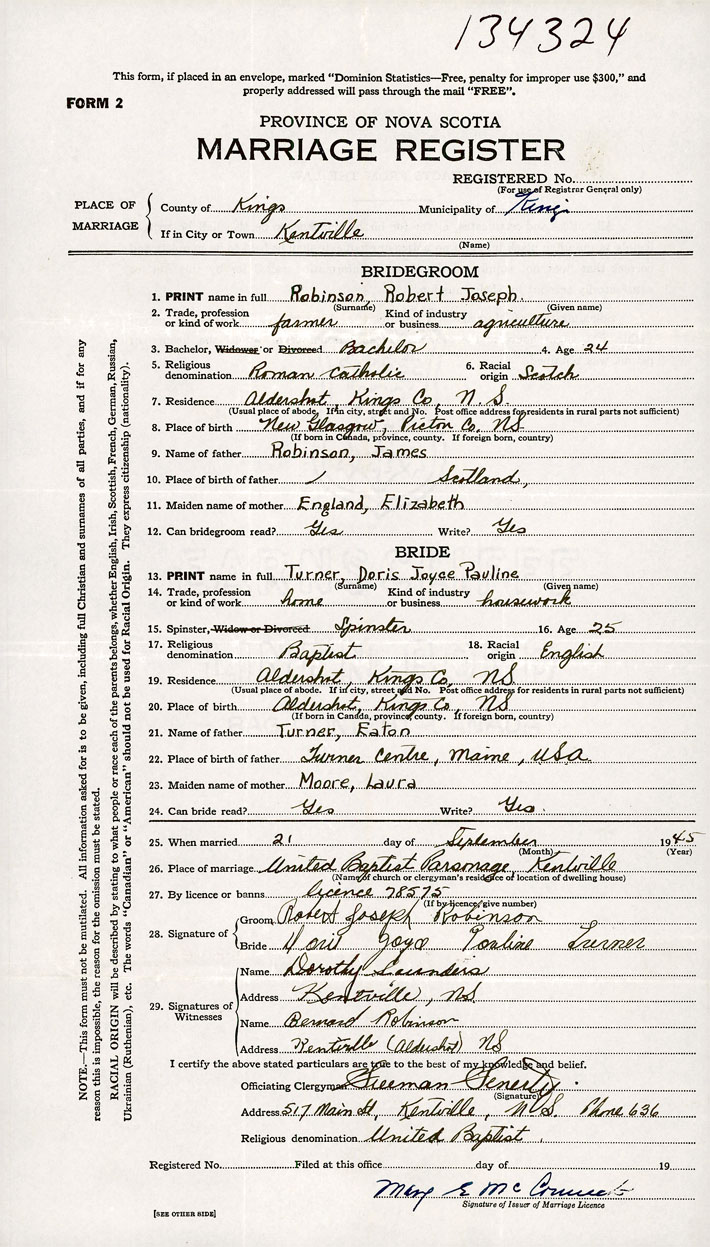 134324
This form, if placed in an envelope, marked “Dominion Statistics—Free, penalty for improper use $300,” and
properly addressed will pass through the mail “FREE”.
FORM 2
PROVINCE OF NOVA SCOTIA
MARRIAGE REGISTER
REGISTERED No.
(For use of Registrar General only)
PLACE OF MARRIAGE
County of Kings Municipality of Kings
If in City or Town Kentville
(Name)
BRIDEGROOM
1. PRINT name in full Robinson, Robert Joseph
(Surname) (Given name)
2. Trade, profession or kind of work farmer Kind of industry or business agriculture
3. Bachelor, Widower or Divorced Bachelor 4. Age 24
5. Religious denomination Roman Catholic 6. Racial origin Scotch
7. Residence Aldershot, Kings Co, N.S.
(Usual place of abode. If in city, street and No. Post office address for residents in rural parts not sufficient)
8. Place of birth New Glasgow, Pictou Co. NS
(If born in Canada, province, county. If foreign born, country)
9. Name of father Robinson, James
10. Place of birth of father / Scotland,
11. Maiden name of mother England, Elizabeth
12. Can bridegroom read? Yes Write? Yes
BRIDE
13. PRINT name in full Turner, Doris Joyce Pauline
(Surname) (Given name)
14. Trade, profession or kind of work home Kind of industry or business housework
15. Spinster, Widow or Divorced Spinster 16. Age 25
17. Religious denomination Baptist 18. Racial origin English
19. Residence Aldershot, Kings Co, NS
(Usual place of abode. If in city, street and No. Post office address for residents in rural parts not sufficient)
20. Place of birth Aldershot, Kings Co, NS
(If born in Canada, province, county. If foreign born, country)
21. Name of father Turner, Eaton
22. Place of birth of father Turner Centre, Maine, USA
23. Maiden name of mother Moore, Laura
24. Can bride read? Yes Write? Yes.
25. When married 21 day of September 1945
(Month) (Year)
26. Place of marriage United Baptist Parsonage, Kentville
(Name of church or clergyman's residence or location of dwelling house)
27. By licence or banns licence 78575
(If by licence, give number)
28. Signature of
Groom Robert Joseph Robinson
Bride Doris Joyce Pauline Turner
29. Signatures of Witnesses
Name Dorothy Saunders
Address Kentville, NS
Name Bernard Robinson
Address Kentville (Aldershot) NS
I certify the above stated particulars are true to the best of my knowledge and belief.
Officiating Clergyman Freeman Fenerty.
(Signature)
Address 517 Main St, Kentville, N.S. Phone 636
Religious denomination United Baptist.
Registered No. Filed at this office day of 19
Mary E
Signature of Issuer of Marriage Licence
[SEE OTHER SIDE]
NOTE.—This form must not be mutilated. All information asked for is to be given, including full Christian and surnames of all parties, and if for any
reason this is impossible, the reason for the omission must be stated.
RACIAL ORIGIN will be described by stating to what people or race each of the parents belongs, whether English, Irish, Scottish, French, German, Russian,
Ukrainian (Ruthenian), etc. The words “Canadian” or “American” should not be used for Racial Origin. They express citizenship (nationality).